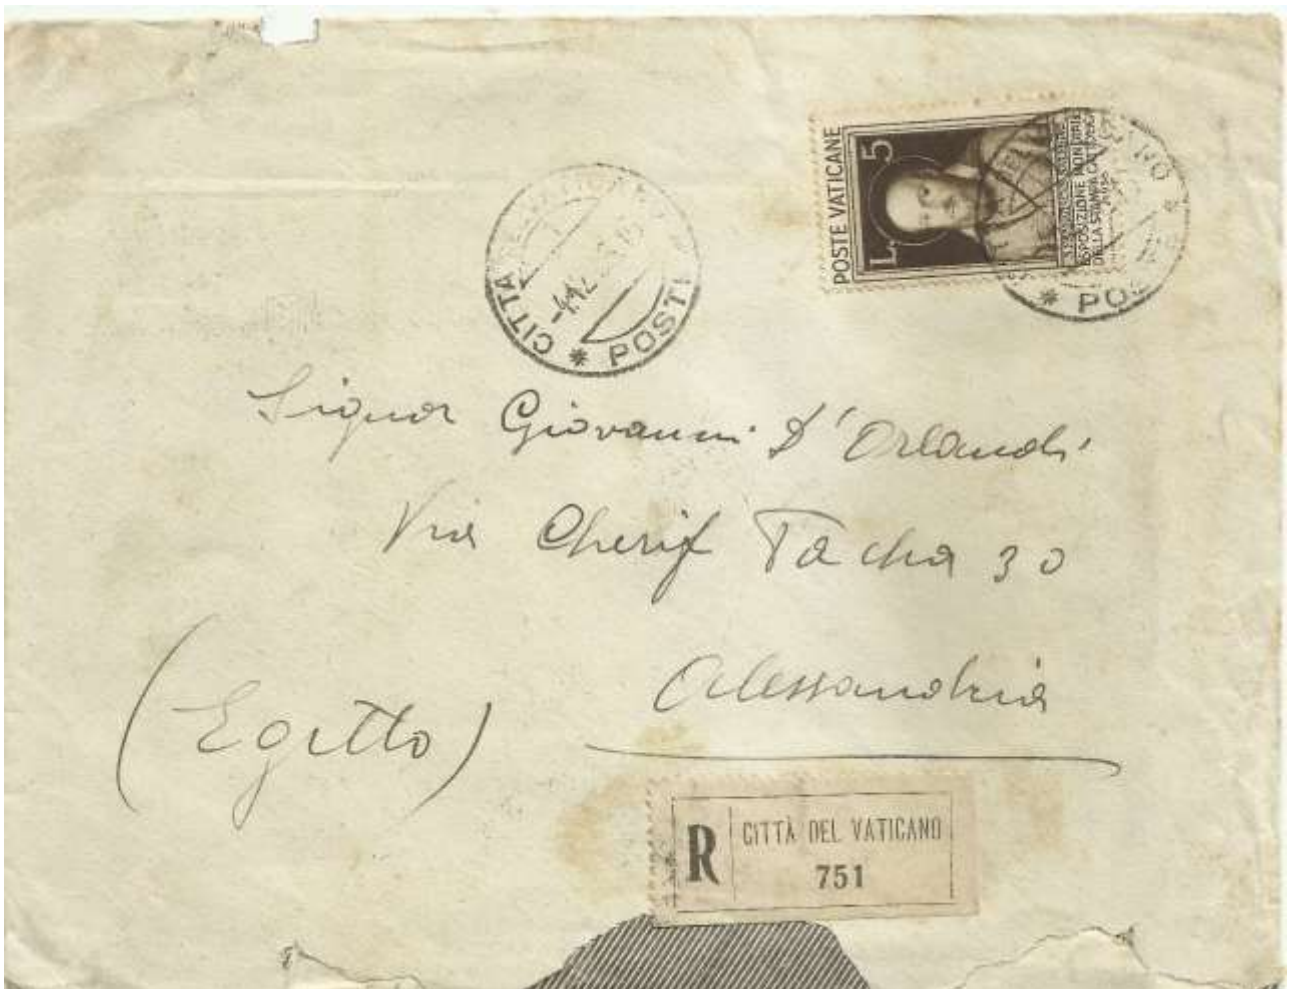 POSTE VATICANE
L. 5
ESPOSIZIONE MONDIALE
DELLA STAMPA CATTOLICA
CITTÀ POSTE
NO
* POS
Signor Giovanni D'Orlandi
Via Cherif Pacha 30
Alessandria
(Egitto)
R
CITTÀ DEL VATICANO
751